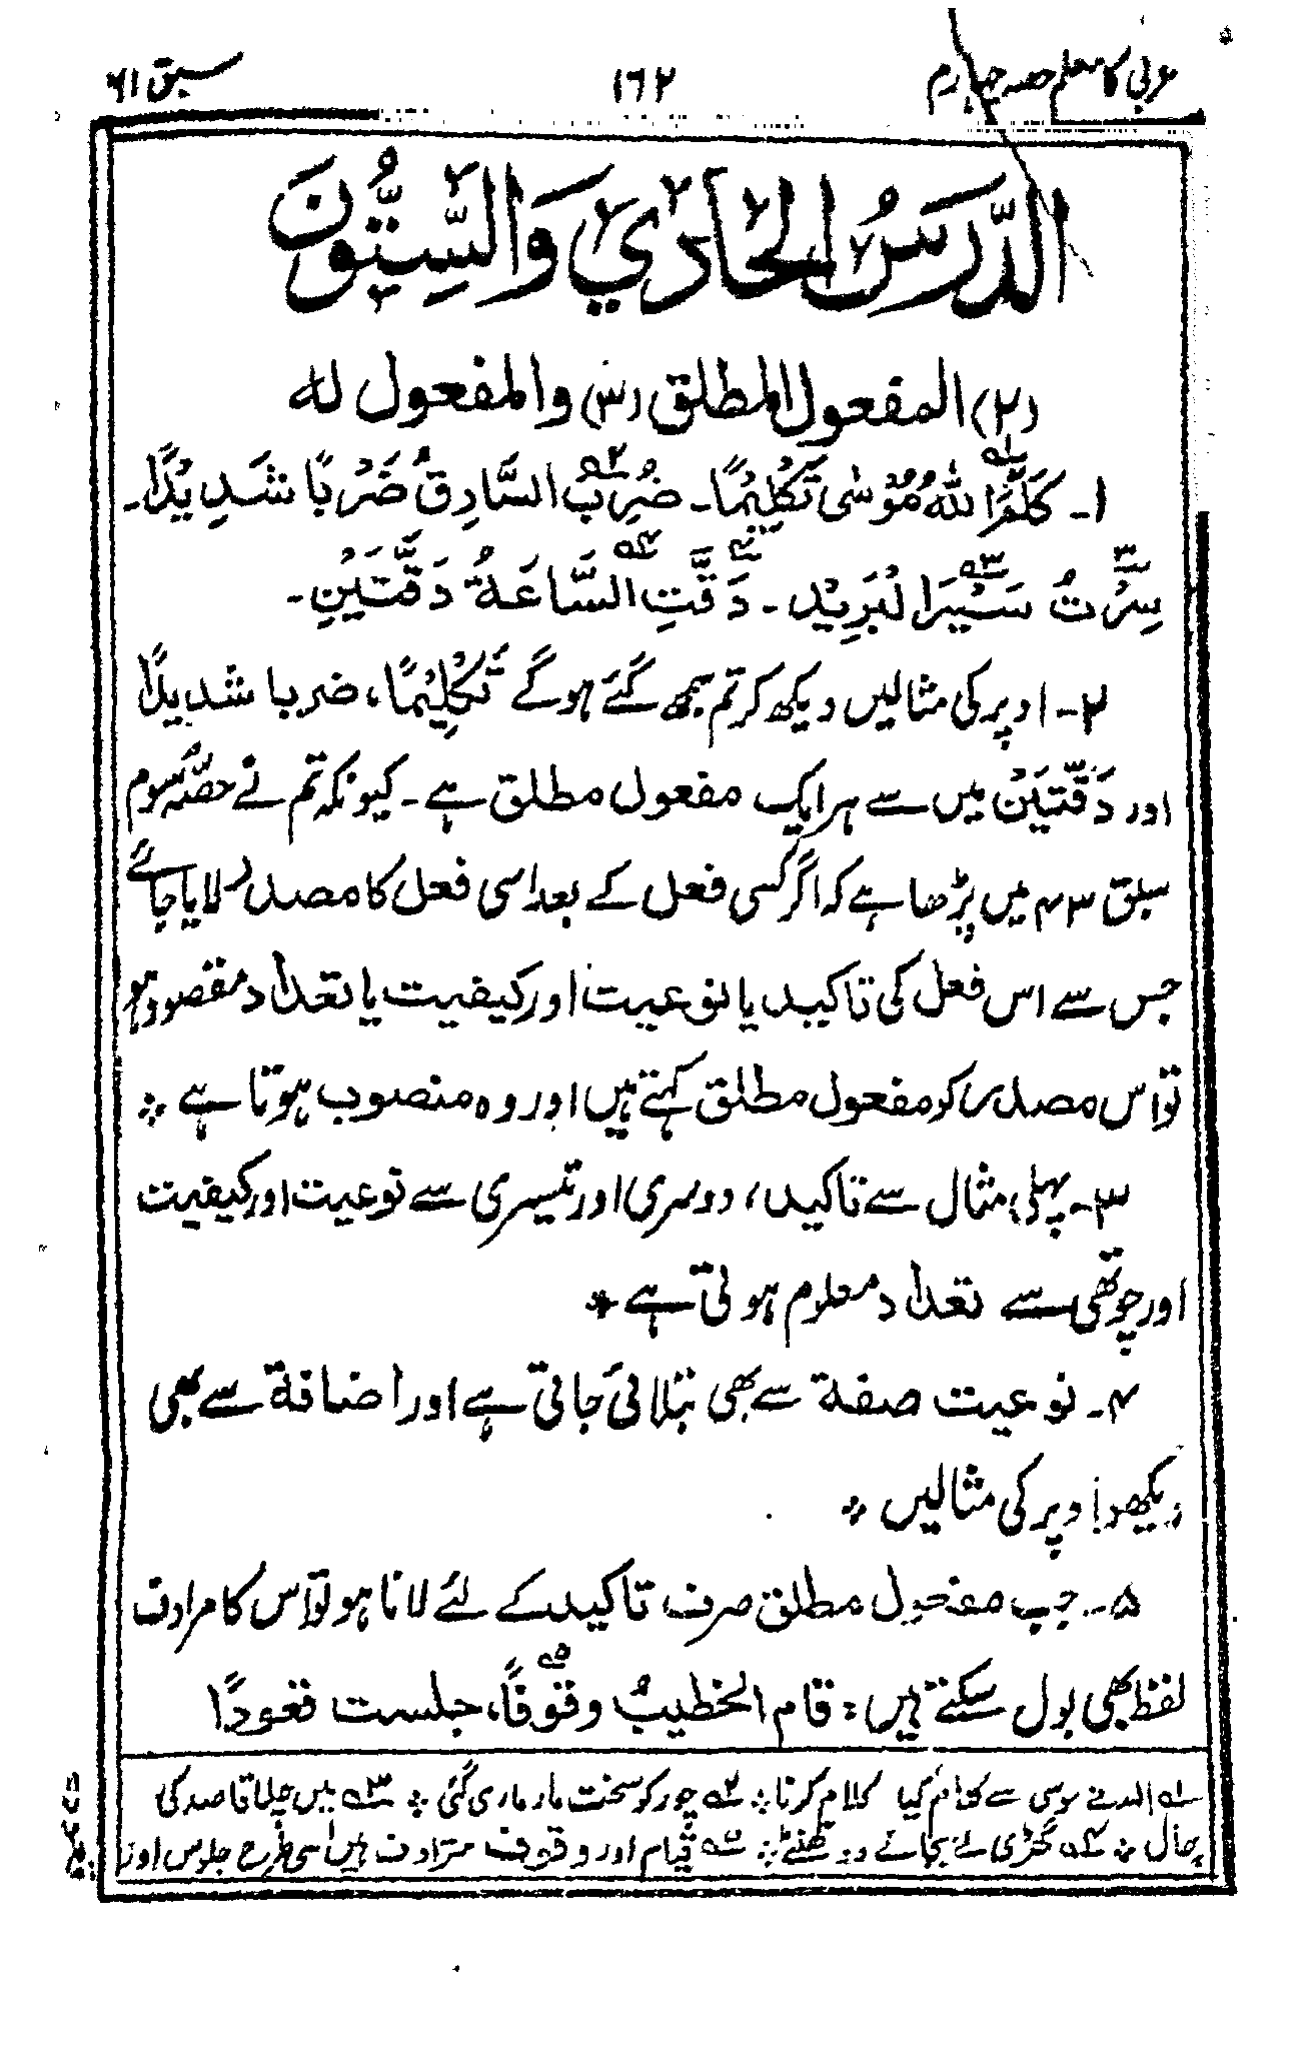 عربی کا معلم حصہ چہارم
۱۶۲
سبق ۶۱
الدَّرسُ الحَادِيْ وَالسِّتُّونَ
(۲) المفعول المطلق (۳) والمفعول لہ
۱۔ كَلَّمَ اللّٰهُ مُوْسٰى تَكْلِيْمًا۔ ضُرِبَ السَّارِقُ ضَرْبًا شَدِيْدًا۔
سِرْتُ سَيْرَ الْبَرِيْدِ۔ دَقَّتِ السَّاعَةُ دَقَّتَيْنِ۔
۲۔ اوپر کی مثالیں دیکھ کر تم سمجھ گئے ہوگے تَكْلِيْمًا، ضربا شديدًا
اور دَقَّتَيْنِ میں سے ہر ایک مفعول مطلق ہے۔ کیونکہ تم نے حصّہ سوم
سبق ۴۳ میں پڑھا ہے کہ اگر کسی فعل کے بعد اسی فعل کا مصدر لایا جائے
جس سے اس فعل کی تاکید یا نوعیت اور کیفیت یا تعداد مقصود ہو
تو اس مصدر کو مفعول مطلق کہتے ہیں اور وہ منصوب ہوتا ہے ❊
۳۔ پہلی مثال سے تاکید، دوسری اور تیسری سے نوعیت اور کیفیت
اور چوتھی سے تعداد معلوم ہوتی ہے ❊
۴۔ نوعیت صفة سے بھی بتلائی جاتی ہے اور اضافة سے بھی
دیکھو اوپر کی مثالیں ❊
۵۔ جب مفعول مطلق صرف تاکید کے لئے لانا ہو تو اس کا مرادف
لفظ بھی بول سکتے ہیں: قام الخطيبُ وقوفًا، جلست قعودًا
لہ اللہ نے موسیٰ سے کلام کیا کلام کرنا ❊ ۲ہ چور کو سخت مار ماری گئی ❊ ۳ہ میں چلا قاصد کی
چال ❊ ۴ہ گھڑی نے بجائے دو گھنٹے ❊ ۵ہ قیام اور وقوف مترادف ہیں اسی طرح جلوس اور